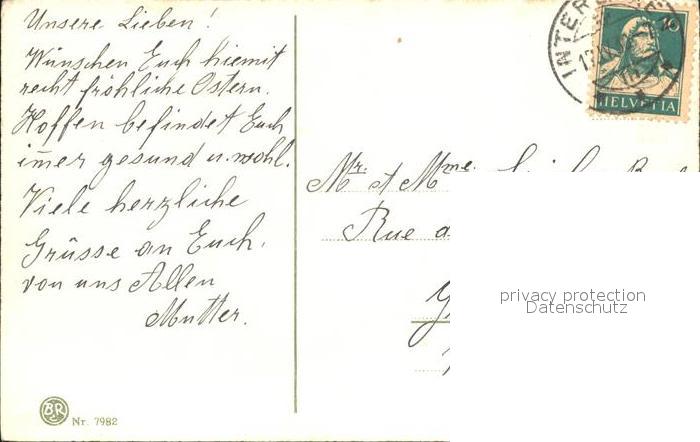 Unsere Lieben!
Wünschen Euch hiemit
recht fröhliche Ostern.
Hoffen befindet Euch
im̄er gesund u. wohl.
Viele herzliche
Grüsse an Euch.
von uns Allen
Mutter.
BR
Nr. 7982
INTER
10
HELVETIA
Mr. et Mme.
Rue
privacy protection
Datenschutz